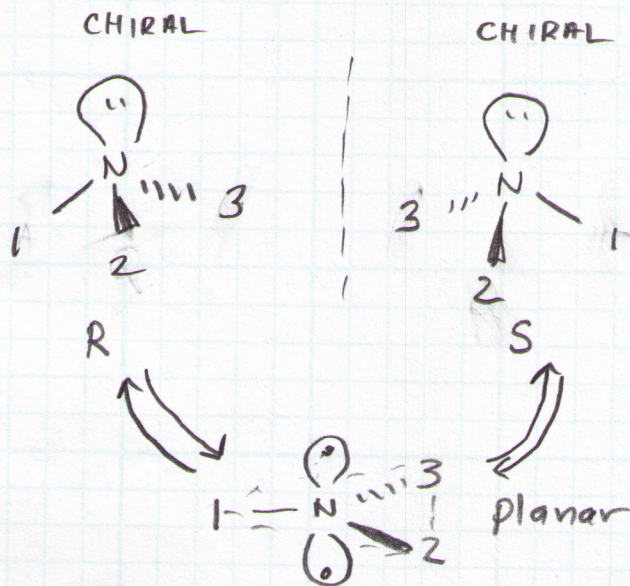 CHIRAL
CHIRAL
N
3
1
2
R
N
3
1
2
S
1
N
3
2
planar